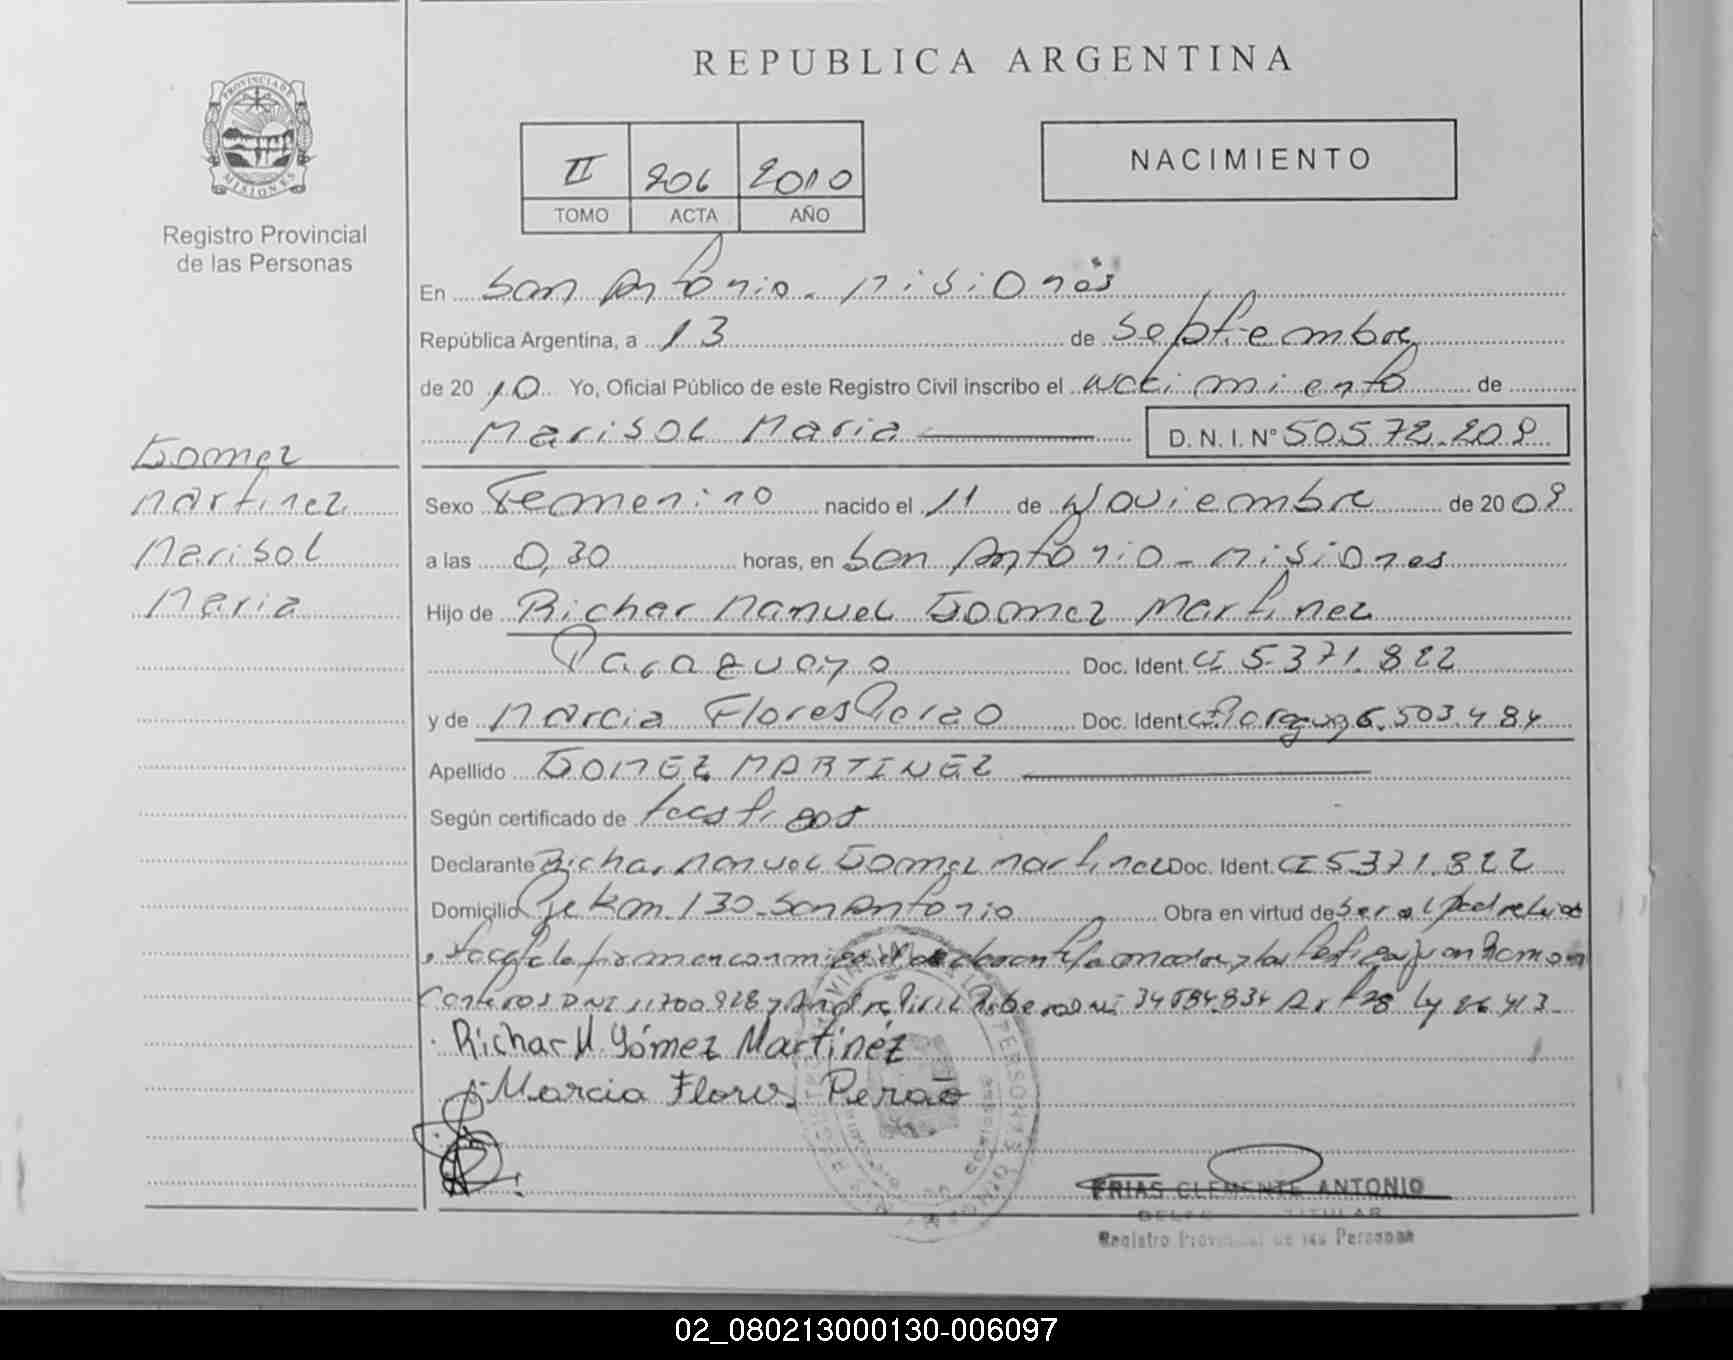 REPUBLICA ARGENTINA
PROVINCIA DE
MISIONES
Registro Provincial
de las Personas
II 206 2010
TOMO ACTA AÑO
NACIMIENTO
En San Antonio - Misiones
República Argentina, a 13 de Septiembre
de 2010 Yo, Oficial Público de este Registro Civil inscribo el nacimiento de
Marisol Maria D.N.I. N° 50.572.209
Gomez
Martinez
Marisol
Maria
Sexo Femenino nacido el 11 de Noviembre de 2009
a las 0,30 horas, en San Antonio - Misiones
Hijo de Richar Manuel Gomez Martinez
Paraguayo Doc. Ident. CI 5.371.822
y de Marcia Flores Perao Doc. Ident. 6.503.484
Apellido GOMEZ MARTINEZ
Según certificado de testigos
Declarante Richar Manuel Gomez Martinez Doc. Ident. CI 5.371.822
Domicilio Pje km. 130 - San Antonio Obra en virtud de ser el padre
la firman conmigo el declarante la madre y los testigos Juan Ramon
DNI 11700928 y 34684834 Art 28 Ley 26.413
Richar M. Gómez Martínez
Marcia Flores Perao
FRIAS CLEMENTE ANTONIO
TITULAR
Registro Provincial de las Personas
02_080213000130-006097